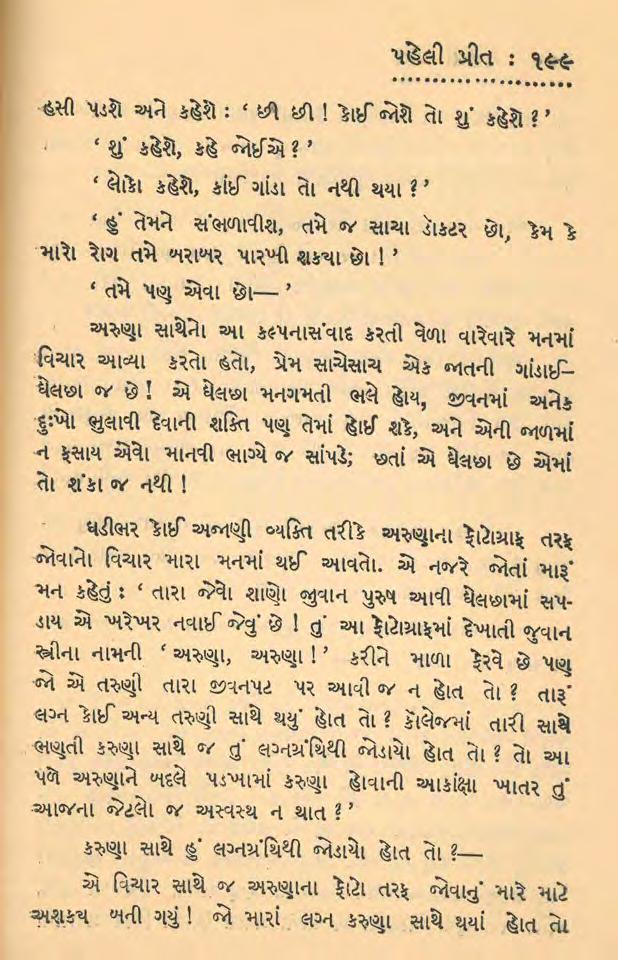 પહેલી પ્રીત : ૧૯૯
હસી પડશે અને કહેશે : ‘ છી છી ! કોઈ જોશે તો શું કહેશે ? ’
‘ શું કહેશે, કહે જોઈએ ? ’
‘ લોકો કહેશે, કાંઈ ગાંડા તો નથી થયા ? ’
‘ હું તેમને સંભળાવીશ, તમે જ સાચા ડૉકટર છો, કેમ કે
મારો રોગ તમે બરાબર પારખી શકયા છો ! ’
‘ તમે પણ એવા છો— ’
અરુણા સાથેનો આ કલ્પનાસંવાદ કરતી વેળા વારેવારે મનમાં
વિચાર આવ્યા કરતો હતો, પ્રેમ સાચેસાચ એક જાતની ગાંડાઈ–
ઘેલછા જ છે ! એ ઘેલછા મનગમતી ભલે હોય, જીવનમાં અનેક
દુઃખો ભુલાવી દેવાની શક્તિ પણ તેમાં હોઈ શકે, અને એની જાળમાં
ન ફસાય એવો માનવી ભાગ્યે જ સાંપડે; છતાં એ ઘેલછા છે એમાં
તો શંકા જ નથી !
ઘડીભર કોઈ અજાણી વ્યક્તિ તરીકે અરુણાના ફોટોગ્રાફ તરફ
જોવાનો વિચાર મારા મનમાં થઈ આવતો. એ નજરે જોતાં મારૂં
મન કહેતું : ‘ તારા જેવો શાણો જુવાન પુરુષ આવી ઘેલછામાં સપ-
ડાય એ ખરેખર નવાઈ જેવું છે ! તું આ ફોટોગ્રાફમાં દેખાતી જુવાન
સ્ત્રીના નામની ‘ અરુણા, અરુણા ! ’ કરીને માળા ફેરવે છે પણ
જો એ તરુણી તારા જીવનપટ પર આવી જ ન હોત તો ? તારૂં
લગ્ન કોઈ અન્ય તરુણી સાથે થયું હોત તો ? કૉલેજમાં તારી સાથે
ભણતી કરુણા સાથે જ તું લગ્નગ્રંથિથી જોડાયો હોત તો ? તો આ
પળે અરુણાને બદલે પડખામાં કરુણા હોવાની આકાંક્ષા ખાતર તું
આજના જેટલો જ અસ્વસ્થ ન થાત ? ’
કરુણા સાથે હું લગ્નગ્રંથિથી જોડાયો હોત તો ?—
એ વિચાર સાથે જ અરુણાના ફોટો તરફ જોવાનું મારે માટે
અશકય બની ગયું ! જો મારાં લગ્ન કરુણા સાથે થયાં હોત તો